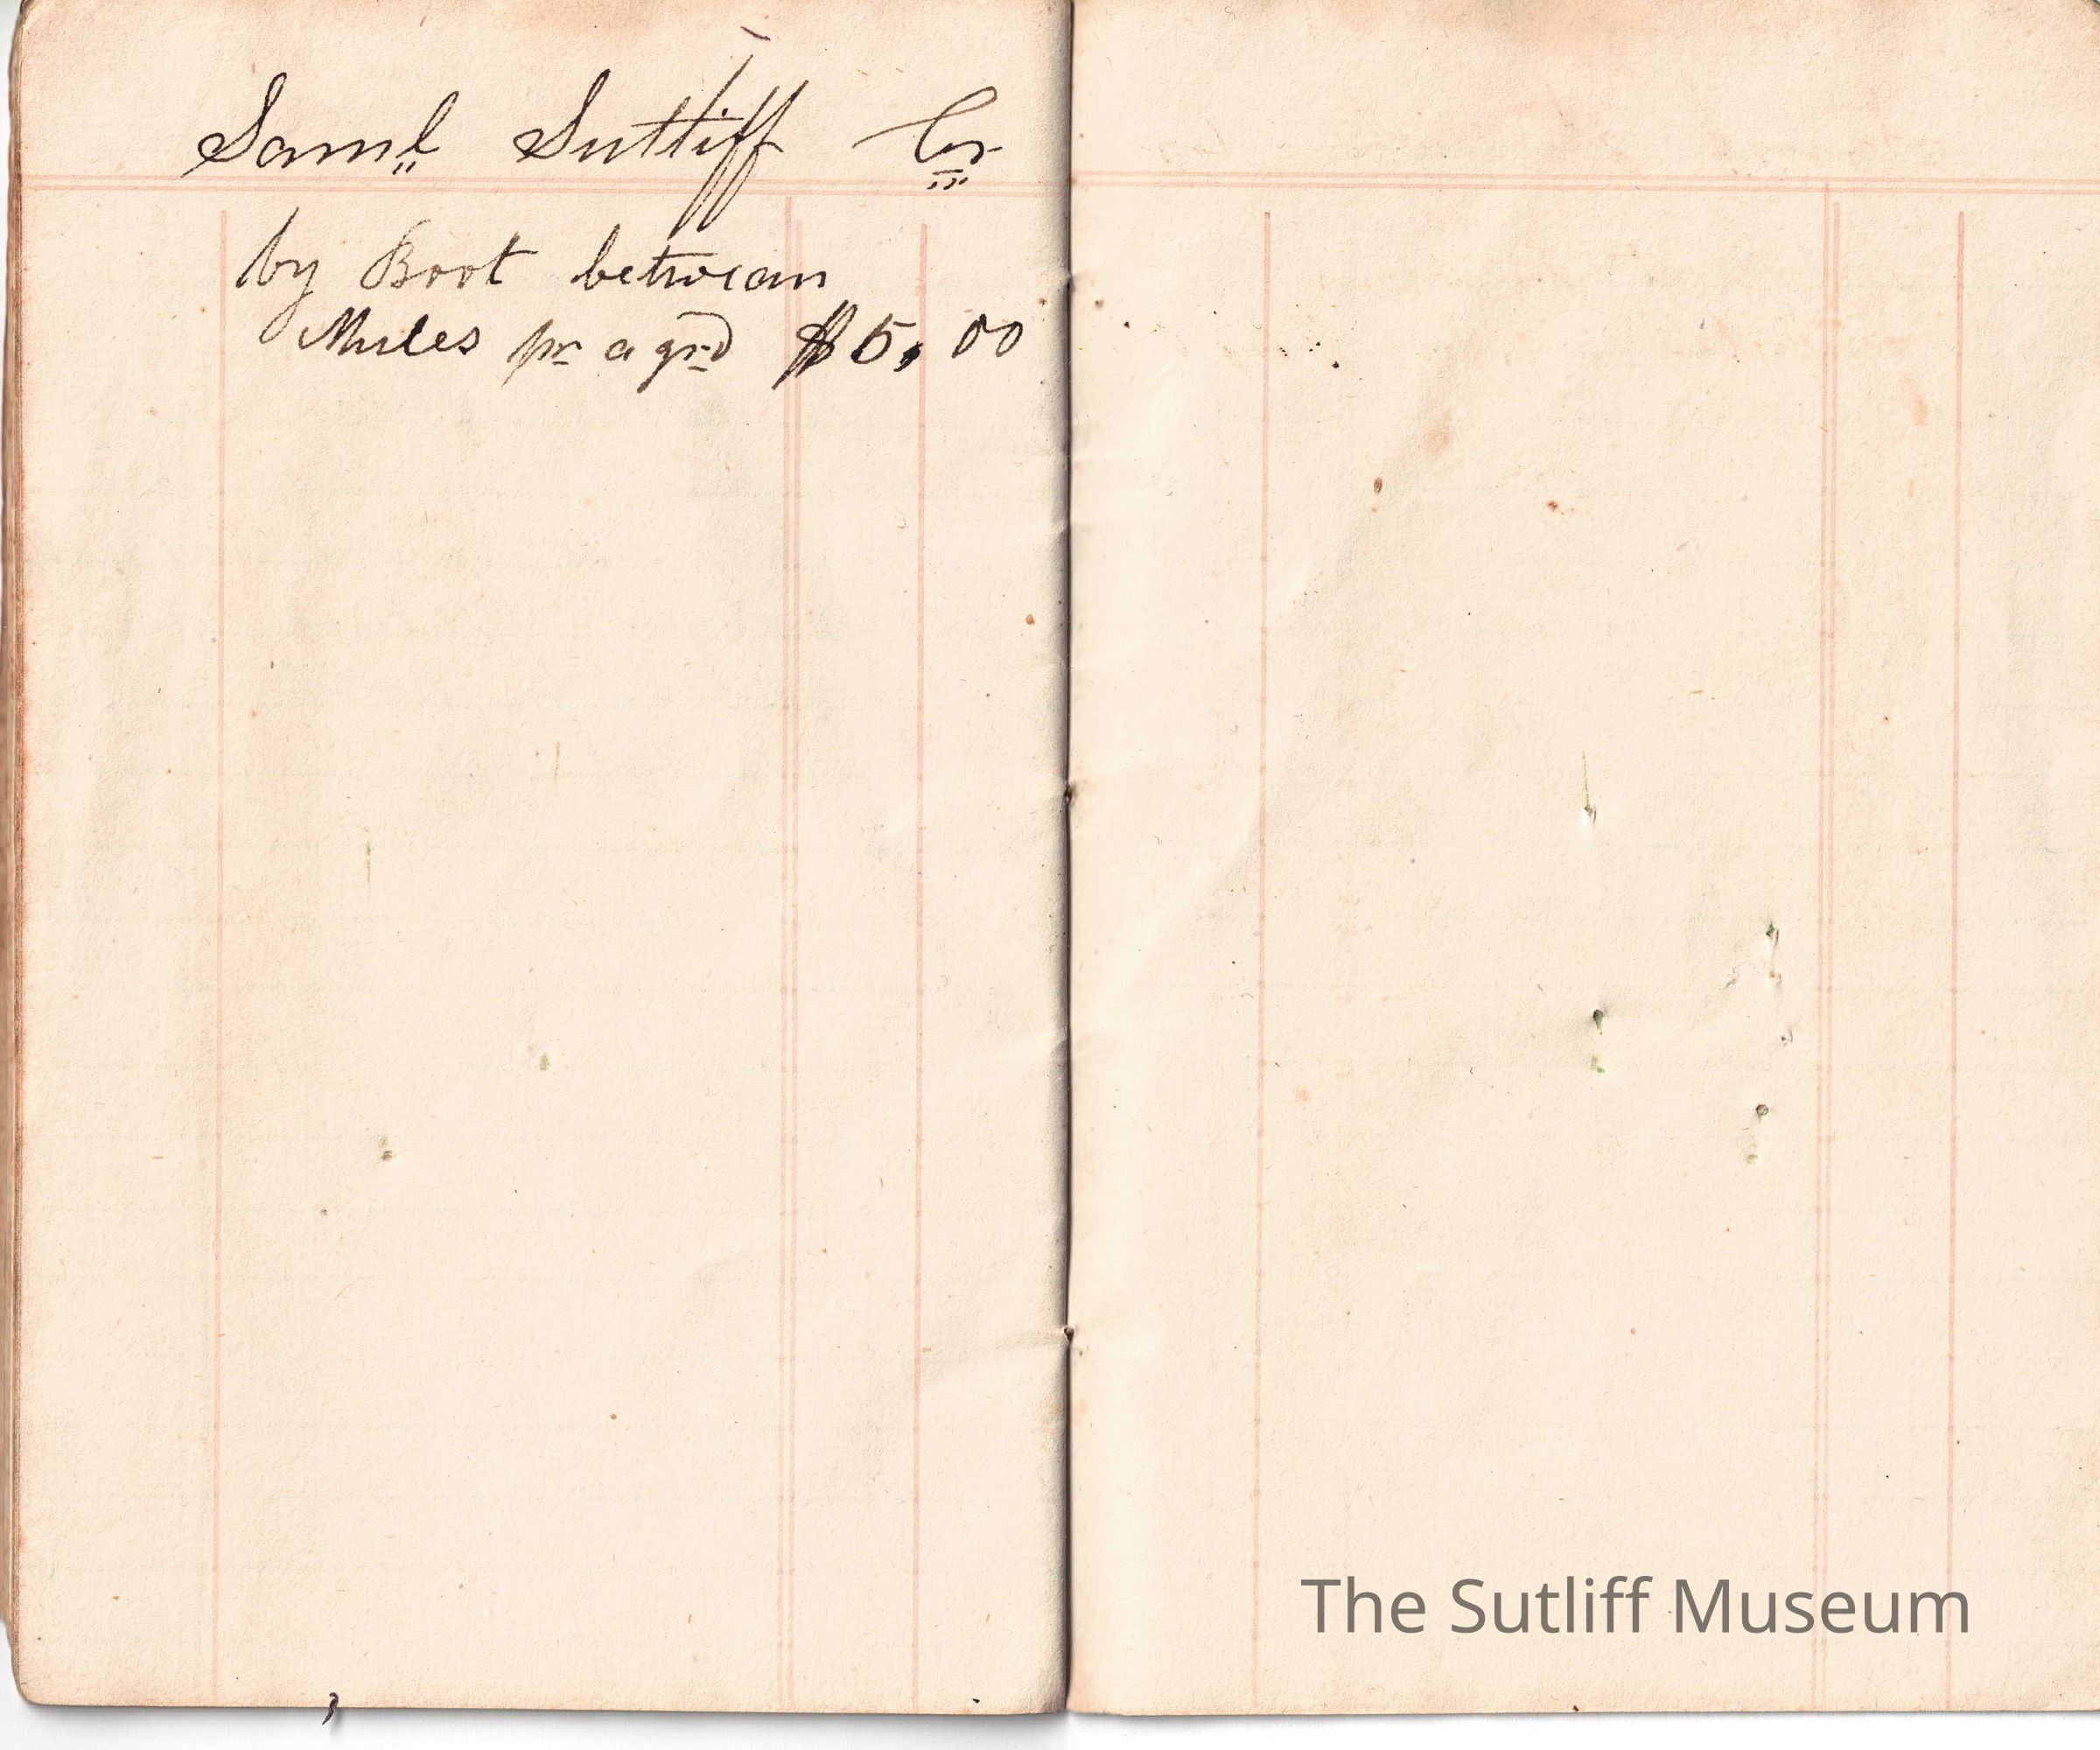 Saml Sutliff Cr
by Boot betwean
Mules pr agrd $5,00
The Sutliff Museum